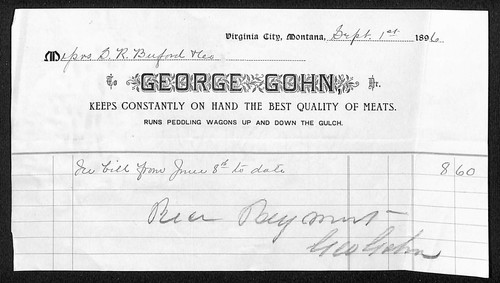 Virginia City, Montana, Sept. 1st 1896
Messrs S. R. Buford & Co
To GEORGE GOHN, Dr.
KEEPS CONSTANTLY ON HAND THE BEST QUALITY OF MEATS.
RUNS PEDDLING WAGONS UP AND DOWN THE GULCH.
bill from June 8th to date 8 60
Rec Payment
Geo Gohn